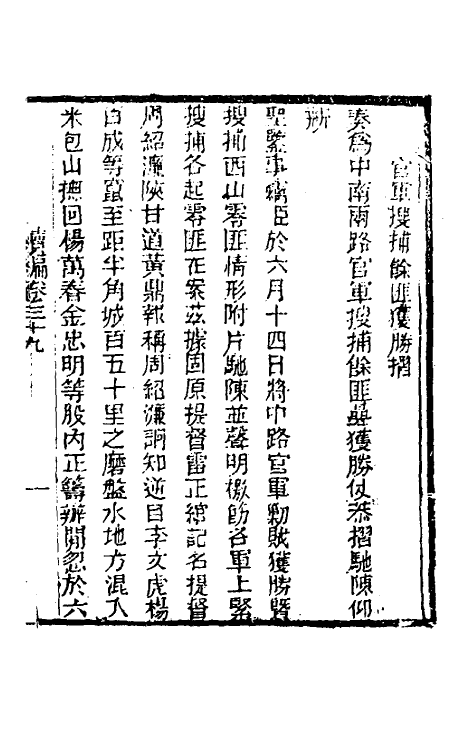 官軍搜捕餘匪獲勝摺
奏爲中南兩路官軍搜捕餘匪疊獲勝仗恭摺馳陳仰
祈
聖鑒事竊臣於六月十四日將中路官軍勦賊獲勝暨
搜捕西山零匪情形附片馳陳並聲明檄飭各軍上緊
搜捕各起零匪在案茲據固原提督雷正綰記名提督
周紹濂陝甘道黃鼎報稱周紹濂詗知逆目李文虎楊
自成等竄至距半角城百五十里之磨盤水地方混入
米包山撫回楊萬春金忠明等股內正籌辦間忽於六
續編卷三十九
一